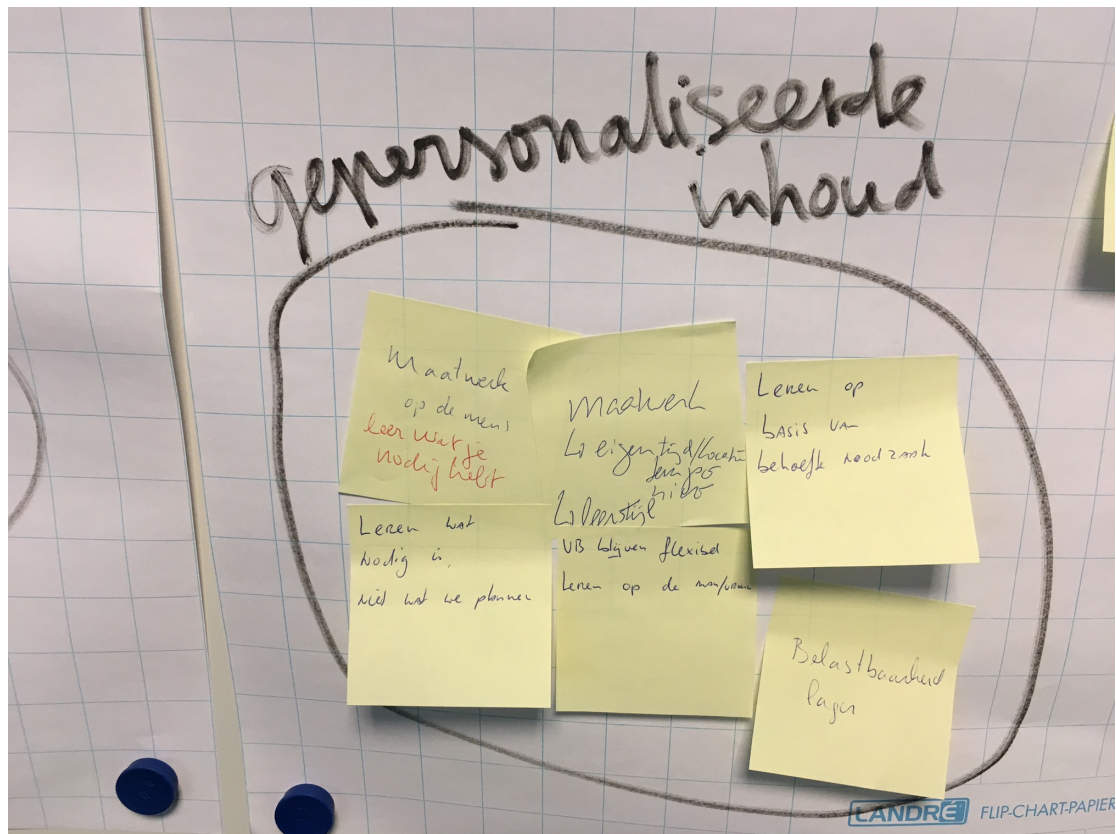 gepersonaliseerde
inhoud
Maatwerk
op de mens
leer wat je
nodig hebt
Maatwerk
↳ eigen tijd/locatie
tempo
niveo
↳ leerstijl
Leren op
basis van
behoefte noodzaak
Leren wat
nodig is,
niet wat we plannen
VB blijven flexibel
Leren op de man/vrouw
Belastbaarheid
lager
LANDRÉ FLIP-CHART-PAPIER